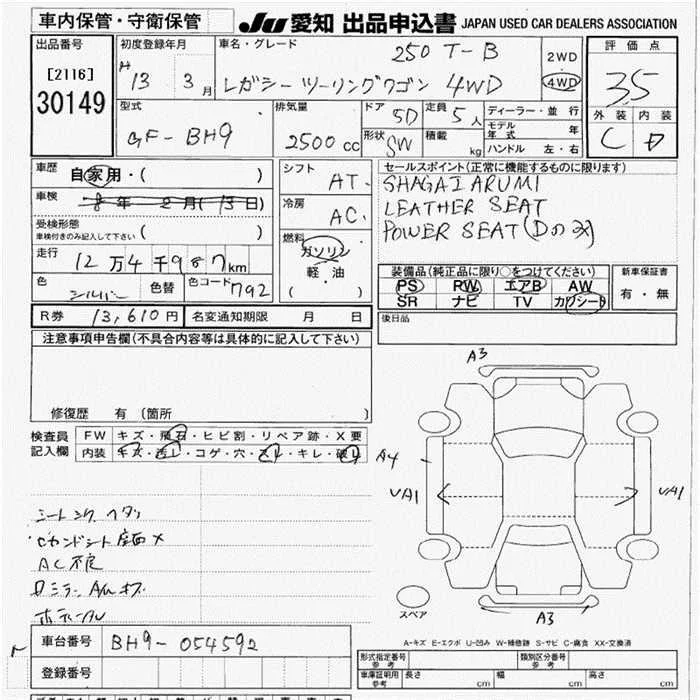 車内保管・守衛保管
JU 愛知 出品申込書 JAPAN USED CAR DEALERS ASSOCIATION
出品番号
[2116]
30149
初度登録年月
H 13 3月
車名・グレード
250 T-B
レガシーツーリングワゴン 4WD
2WD
4WD
評価点
3.5
外装 内装
C D
型式
GF-BH9
排気量
2500cc
ドア 5D
形状 SW
定員 5人
積載 kg
ディーラー・並行
モデル年式 年
ハンドル 左・右
車歴
自家用・( )
車検
8年2月(15日)
受検形態
車検付きのみ記入して下さい ( )
走行
12万4千987km
色
シルバー
色替
色コード 792
シフト
AT
冷房
AC
燃料
ガソリン
軽・油
( )
セールスポイント(正常に機能するものに限ります)
SHAGAI ARUMI
LEATHER SEAT
POWER SEAT (Dのみ)
装備品(純正品に限り○をつけてください)
PS RW エアB AW
SR ナビ TV カワシート
新車保証書
有・無
R券 13,610円 名変通知期限 月 日
後日品
注意事項申告欄(不具合内容等は具体的に記入して下さい)
修復歴 有(箇所 )
検査員記入欄
FW キズ・飛石・ヒビ割・リペア跡・X要
内装 キズ・汚レ・コゲ・穴・スレ・キレ・破レ
シート シワ ヘタリ
Cカンドシート 座面 X
AC不良
A3
A4
UA1
UA1
A3
スペア
A-キズ E-エクボ U-凹み W-補修跡 S-サビ C-腐食 XX-交換済
車台番号 BH9-054592
登録番号
形式指定番号 参考
類別区分番号 参考
車庫証明用 参考 長さ cm 幅 cm 高さ cm